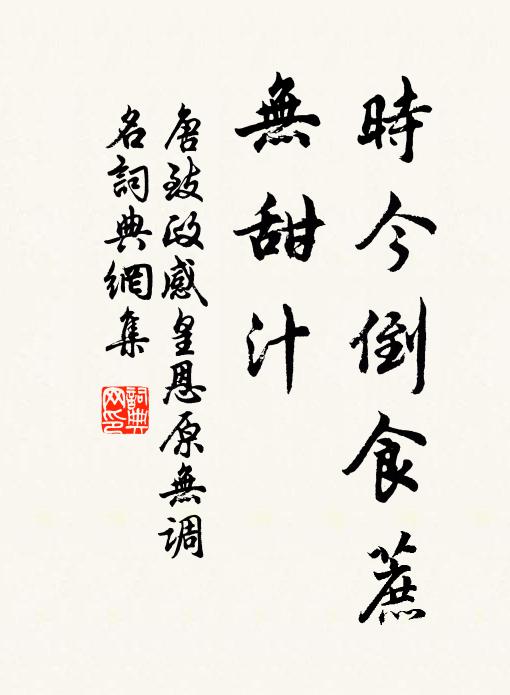 時今倒食蔗
無甜汁
唐致政感皇恩原無調
名詞典網集
詞典网印